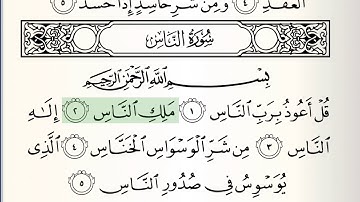 ٱلْعُقَدِ ٤ وَمِن شَرِّ حَاسِدٍ إِذَا حَسَدَ ٥
سُورَةُ النَّاسِ
بِسْمِ ٱللَّهِ ٱلرَّحْمَٰنِ ٱلرَّحِيمِ
قُلْ أَعُوذُ بِرَبِّ ٱلنَّاسِ ١ مَلِكِ ٱلنَّاسِ ٢ إِلَٰهِ
ٱلنَّاسِ ٣ مِن شَرِّ ٱلْوَسْوَاسِ ٱلْخَنَّاسِ ٤ ٱلَّذِى
يُوَسْوِسُ فِى صُدُورِ ٱلنَّاسِ ٥